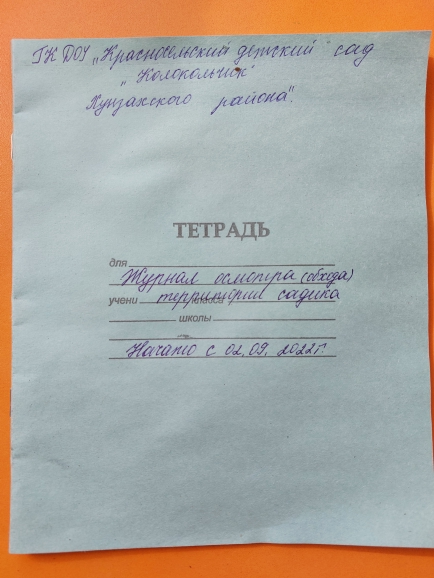 ГК ДОУ „Красносельский детский сад
„Колокольчик"
Хунзахского района".
ТЕТРАДЬ
для
Журнал осмотра (обхода)
учени класса территории садика
школы
Начато с 02.09.2022г.